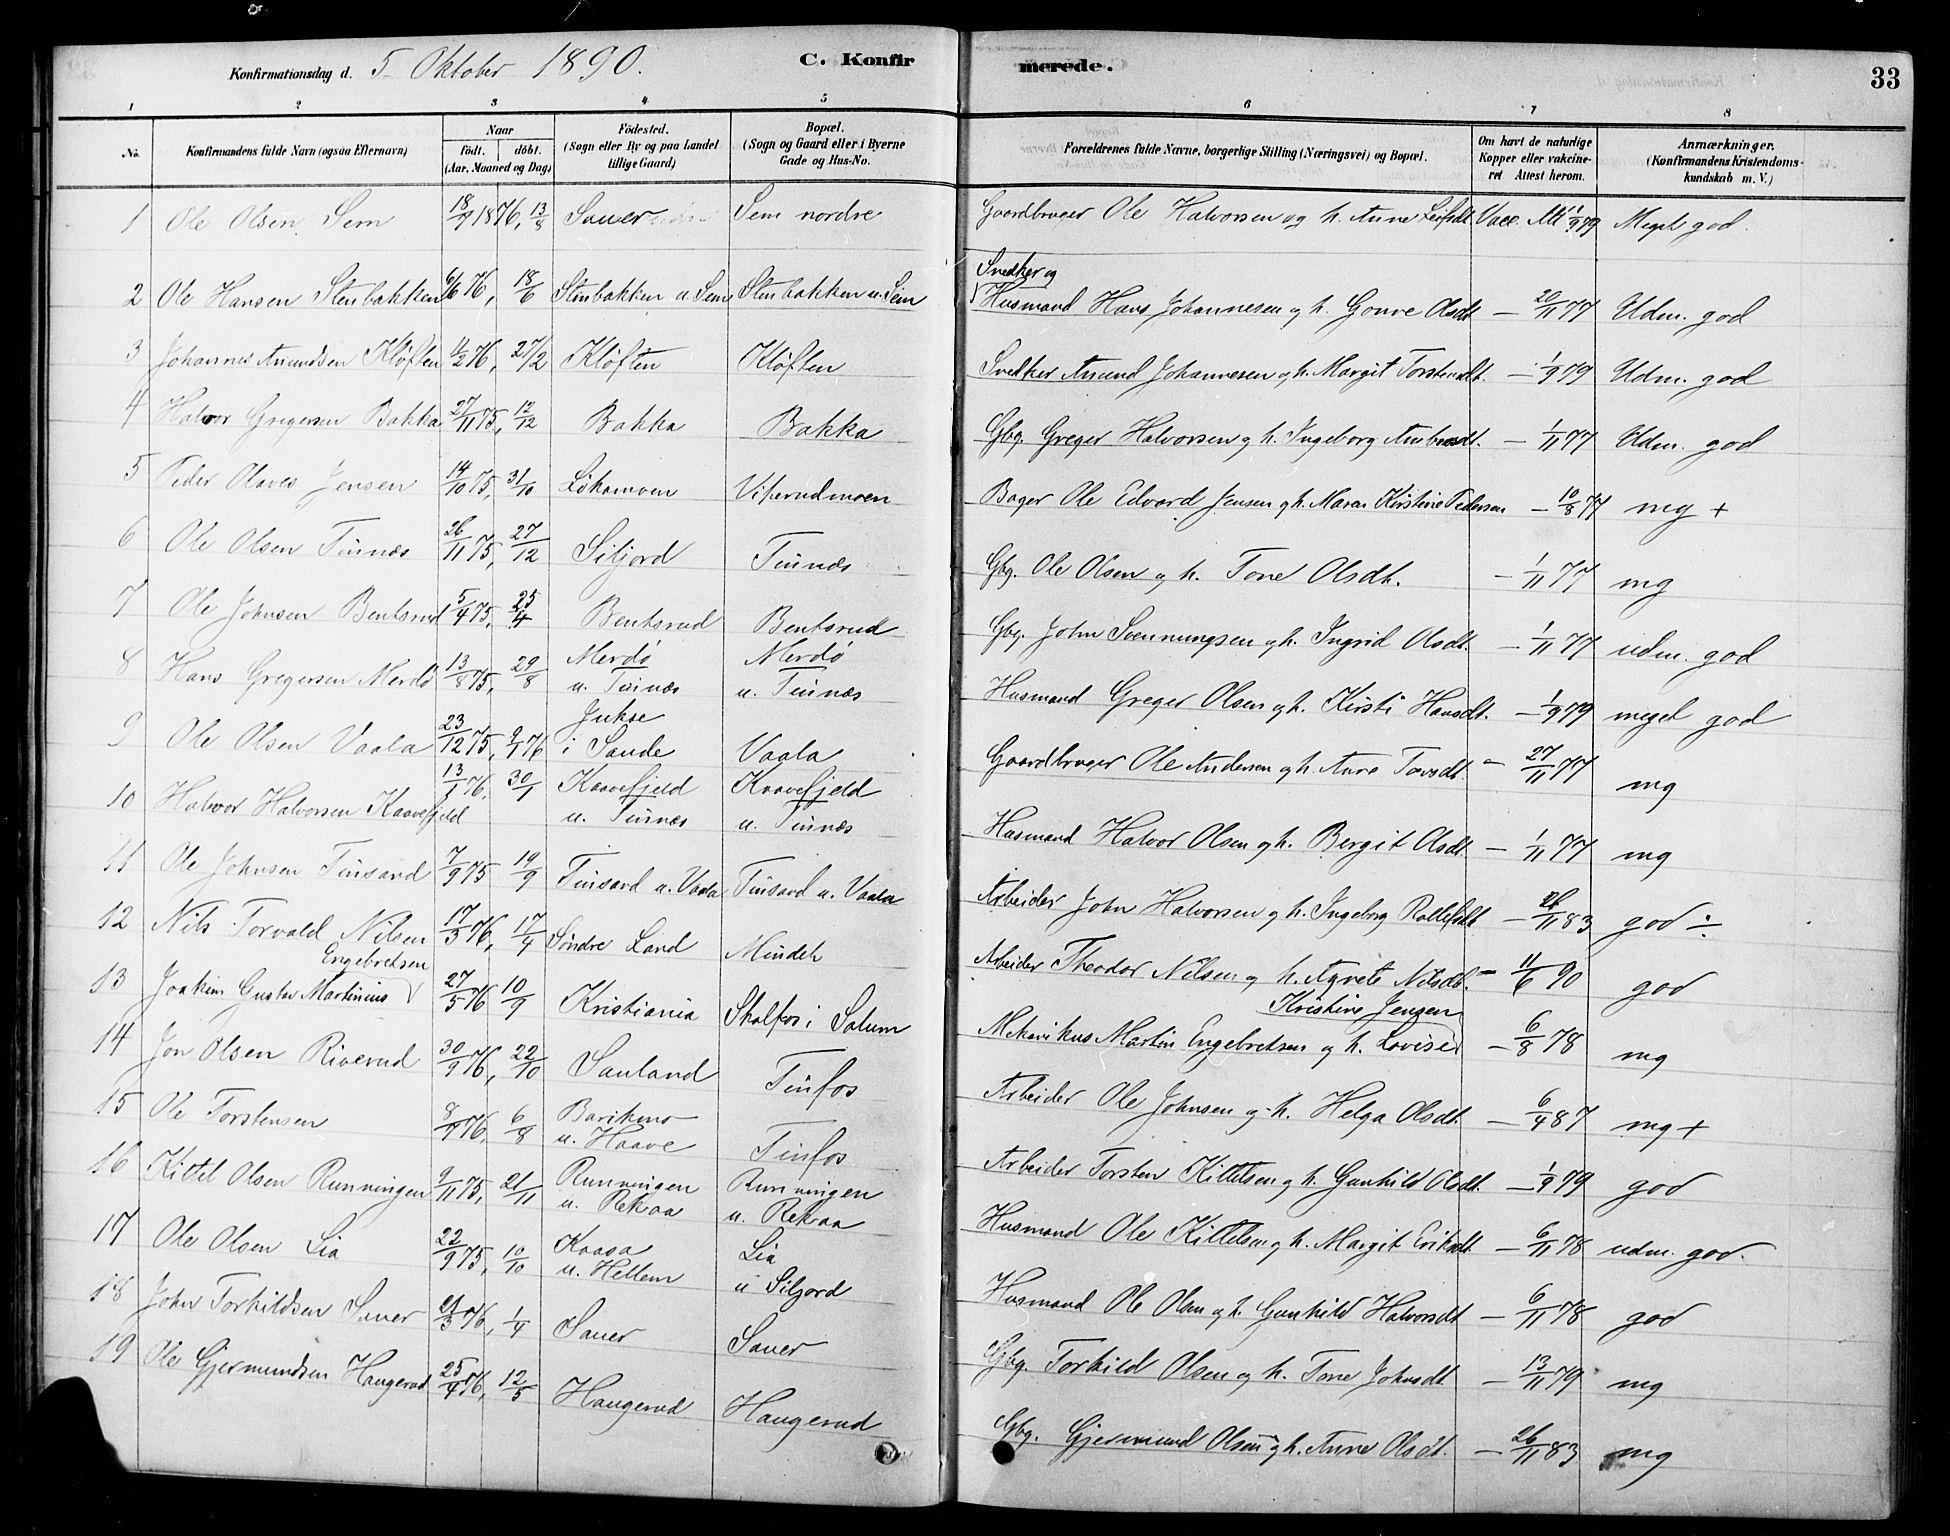 Konfirmationsdag d. 5. Oktober 1890. C. Konfirmerede. 33
1 2 3 4 5 6 7 8
No. Konfirmandens fulde Navn (ogsaa Efternavn) Naar født. døbt. (Aar, Maaned og Dag) Födested. (Sogn eller By og paa Landet tillige Gaard) Bopæl. (Sogn og Gaard eller i Byerne Gade og Hus-No. Forældrenes fulde Navne, borgerlige Stilling (Næringsvei) og Bopæl. Om havt de naturlige Kopper eller vakcineret Attest herom. Anmærkninger. (Konfirmandens Kristendomskundskab m. V.)
1 Ole Olsen Sem 18/7 1876, 13/8 Sauer Sem nordre Gaardbruger Ole Halvorsen og h. Anne Leifsdt. Vacc. Att 1/9 79 Meget god.
2 Ole Hansen Stenbakken 6/6 76, 18/6 Stenbakken u. Sem Stenbakken u. Sem Snedker og Husmand Hans Johannesen og h. Gonve Olsdt. — 20/11 77 Udm. god
3 Johannes Amundsen Kløften 11/2 76, 27/2 Kløften Kløften Snedker Amund Johannesen og h. Margit Torstensdt. — 1/9 79 Udm. god
4 Halvor Gregersen Bakka 27/11 75, 12/12 Bakka Bakka Gbg. Greger Halvorsen og h. Ingeborg Ambrosdt. — 1/11 77 Udm. god
5 Peder Olaves Jensen 14/10 75, 31/10 Løkamoen Viperudmoen Bager Ole Edvard Jensen og h. Maren Kirstine Pedersen — 10/8 77 mg +
6 Ole Olsen Tinnæs 26/11 75, 27/12 Siljord Tinnæs Gbg. Ole Olsen og h. Tone Olsdt. — 1/11 77 mg
7 Ole Johnsen Bentsrud 5/4 75, 25/4 Bentsrud Bentsrud Gbg. John Svennungsen og h. Ingrid Olsdt. — 1/11 77 udm. god
8 Hans Gregersen Merdø 13/8 75, 29/8 Merdø u. Tinnæs Merdø u. Tinnæs Husmand Greger Olsen og h. Kirsti Hansdt. — 1/9 79 meget god
9 Ole Olsen Vaala 23/12 75, 9/1 76 Jukse i Sande Vaala Gaardbruger Ole Andersen og h. Anne Tovsdt. — 27/11 77 mg
10 Halvor Halvorsen Kaavefjeld 13/1 76, 30/1 Kaavefjeld u. Tinnæs Kaavefjeld u. Tinnæs Husmand Halvor Olsen og h. Bergit Olsdt. — 1/11 77 mg
11 Ole Johnsen Tinsand 7/9 75 19/9 Tinsand u. Vaala Tinsand u. Vaala Arbeider John Halvorsen og h. Ingeborg Rollefsdt. — 26/11 83 god ÷
12 Nils Torvald Nilsen 17/3 76, 17/4 Søndre Land Mindet Arbeider Theodor Nilsen og h. Agnete Nilsdt. — 11/6 90 god
13 Joakim Gustav Martinius Engebretsen 27/5 76 10/9 Kristiania Skotfos i Solum Mekanikus Martin Engebretsen og h. Lovise Kristine Jensen — 6/8 78 mg
14 Jon Olsen Riverud 30/9 76, 22/10 Sauland Tinfos Arbeider Ole Johnsen og h. Helga Olsdt. — 6/4 87 mg +
15 Ole Torstensen 8/7 76, 6/8 Barikmo u. Haave Tinfos Arbeider Torsten Kittelsen og h. Gunhild Olsdt. — 1/9 79 god
16 Kittel Olsen Runningen 9/11 75, 21/11 Runningen u. Rekaa Runningen u. Rekaa Husmand Ole Kittelsen og h. Margit Eriksdt. — 6/11 78 udm. god.
17 Ole Olsen Lia 22/9 75, 10/10 Kaasa u. Hellem Lia u Siljord Husmand Ole Olsen og h. Gunhild Halvorsdt. — 6/11 78 god
18 John Torkildsen Sauer 21/3 76, 1/4 Sauer Sauer Gbg. Torkild Olsen og h. Tone Johnsdt. — 13/11 79 mg
19 Ole Gjermundsen Haugerud 25/4 76, 12/5 Haugerud Haugerud Gbg. Gjermund Olsen og h. Anne Olsdt. — 26/11 83 mg